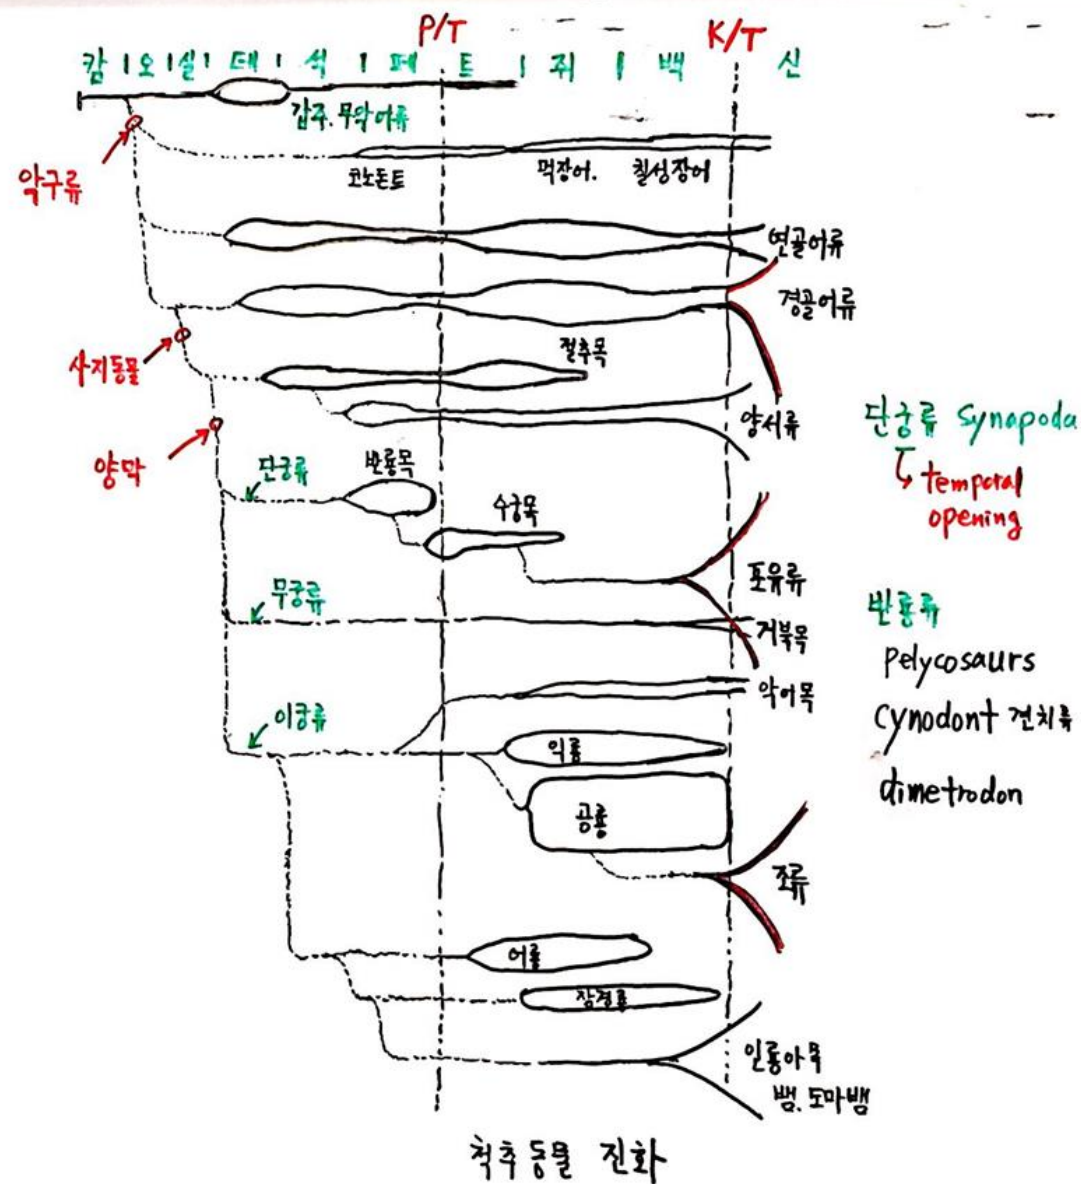 P/T K/T
캄 | 오 | 실 | 데 | 석 | 페 트 | 쥐 | 백 신
갑주.무악어류
악구류
코노돈트 먹장어. 칠성장어
연골어류
경골어류
절추목
사지동물
양서류
양막
단궁류 반룡목
수궁목
포유류
무궁류
거북목
악어목
이궁류
익룡
공룡
조류
어룡
장경룡
인룡아목
뱀.도마뱀
척추동물 진화
단궁류 Synapoda
temporal
opening
반룡류
pelycosaurs
cynodont 견치류
dimetrodon